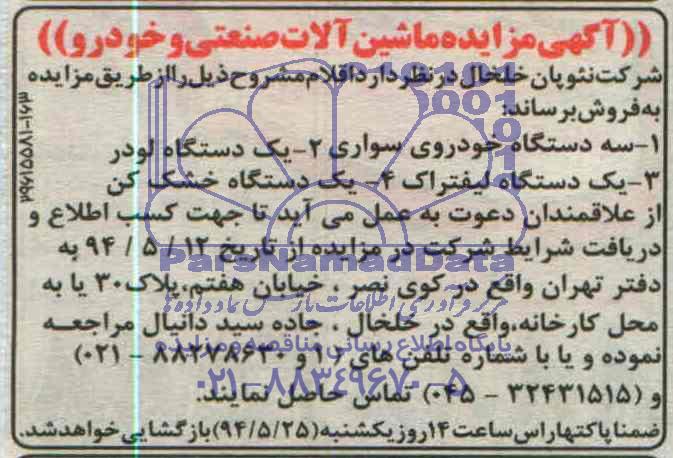 ((آگهی مزایده ماشین آلات صنعتی و خودرو))
شرکت نئوپان خلخال در نظر دارد اقلام مشروح ذیل را از طریق مزایده
به فروش برساند:
۱-سه دستگاه خودروی سواری ۲-یک دستگاه لودر
۳-یک دستگاه لیفتراک ۴- یک دستگاه خشک کن
از علاقمندان دعوت به عمل می آید تا جهت کسب اطلاع و
دریافت شرایط شرکت در مزایده از تاریخ ۱۲ / ۵ / ۹۴ به
دفتر تهران واقع در کوی نصر ، خیابان هفتم، پلاک ۳۰ یا به
محل کارخانه، واقع در خلخال ، جاده سید دانیال مراجعه
نموده و یا با شماره تلفن های ( ۱ و ۸۸۲۷۸۶۳۰ - ۰۲۱)
و (۳۲۴۳۱۵۱۵ - ۰۴۵) تماس حاصل نمایند.
ضمنا پاکتها راس ساعت ۱۴ روز یکشنبه (۹۴/۵/۲۵) بازگشایی خواهد شد.
ParsNamadData
پایگاه اطلاع رسانی مناقصه و مزایده
۰۲۱-۸۸۳۴۹۶۷۰-۵